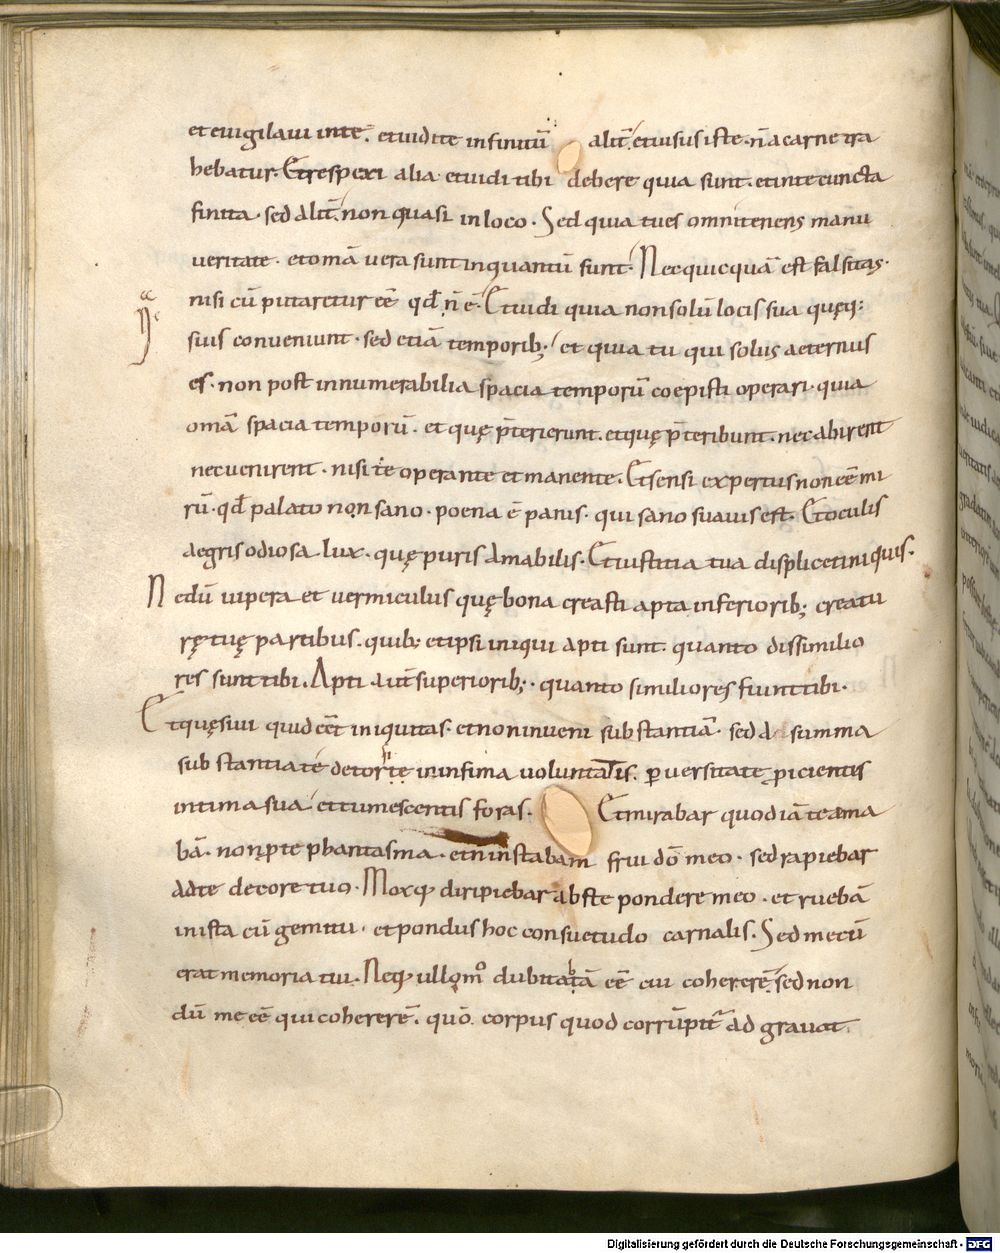 et euigilaui inte. et uidi te infinitū alit̄ et uisus iste. n̄ a carne tra
hebatur. Et respexi alia. et uidi tibi debere quia sunt. et in te cuncta
finita. sed alit̄. non quasi in loco. Sed quia tu es omnitenens manu
ueritate. et om̄a uera sunt inquantū sunt. Nec quicquā est falsitas.
nisi cū putaretur ee̅ qd̄ n̄ ē. Et uidi quia non solū locis sua quęq:
suis conueniunt. sed etiā temporib; et quia tu qui solus aeternus
es. non post innumerabilia spacia temporū coepisti operari. quia
omā spacia temporū. et quę p̄terierunt. et quę p̄teribunt. nec abirent
nec uenirent. nisi te operante et manente. Et sensi expertus non eē mi
rū. qd̄ palato non sano. poena ē panis. qui sano suauis est. Et oculis
aegris odiosa lux. quę puris amabilis. Et iustitia tua displicet iniquis.
Nedū uipera et uermiculus quę bona creasti apta inferiorib; creatu
rę tuę partibus. quib; et ipsi iniqui apti sunt. quanto dissimilio
res sunt tibi. Apti aut̄ superiorib;. quanto similiores fiunt tibi.
Et quęsiui quid eēt iniquitas. et non inueni substantiā. sed a summa
substantia te detortę in infima uoluntatis. ꝑuersitate ꝓicientis
intima sua et tumescentis foras. Et mirabar quod iā te ama
bā. non p te phantasma. et n̄ instabam frui dō meo. sed rapiebar
ad te decore tuo. Moxq; diripiebar abs te pondere meo. et ruebā
in ista cū gemitu. et pondus hoc consuetudo carnalis. Sed mecū
erat memoria tui. Neq; ullo m̊ dubitabā eē cui cohererē sed non
dū me eē qui cohererē. quō corpus quod corrūpit̄ ad grauat.
Digitalisierung gefördert durch die Deutsche Forschungsgemeinschaft - DFG